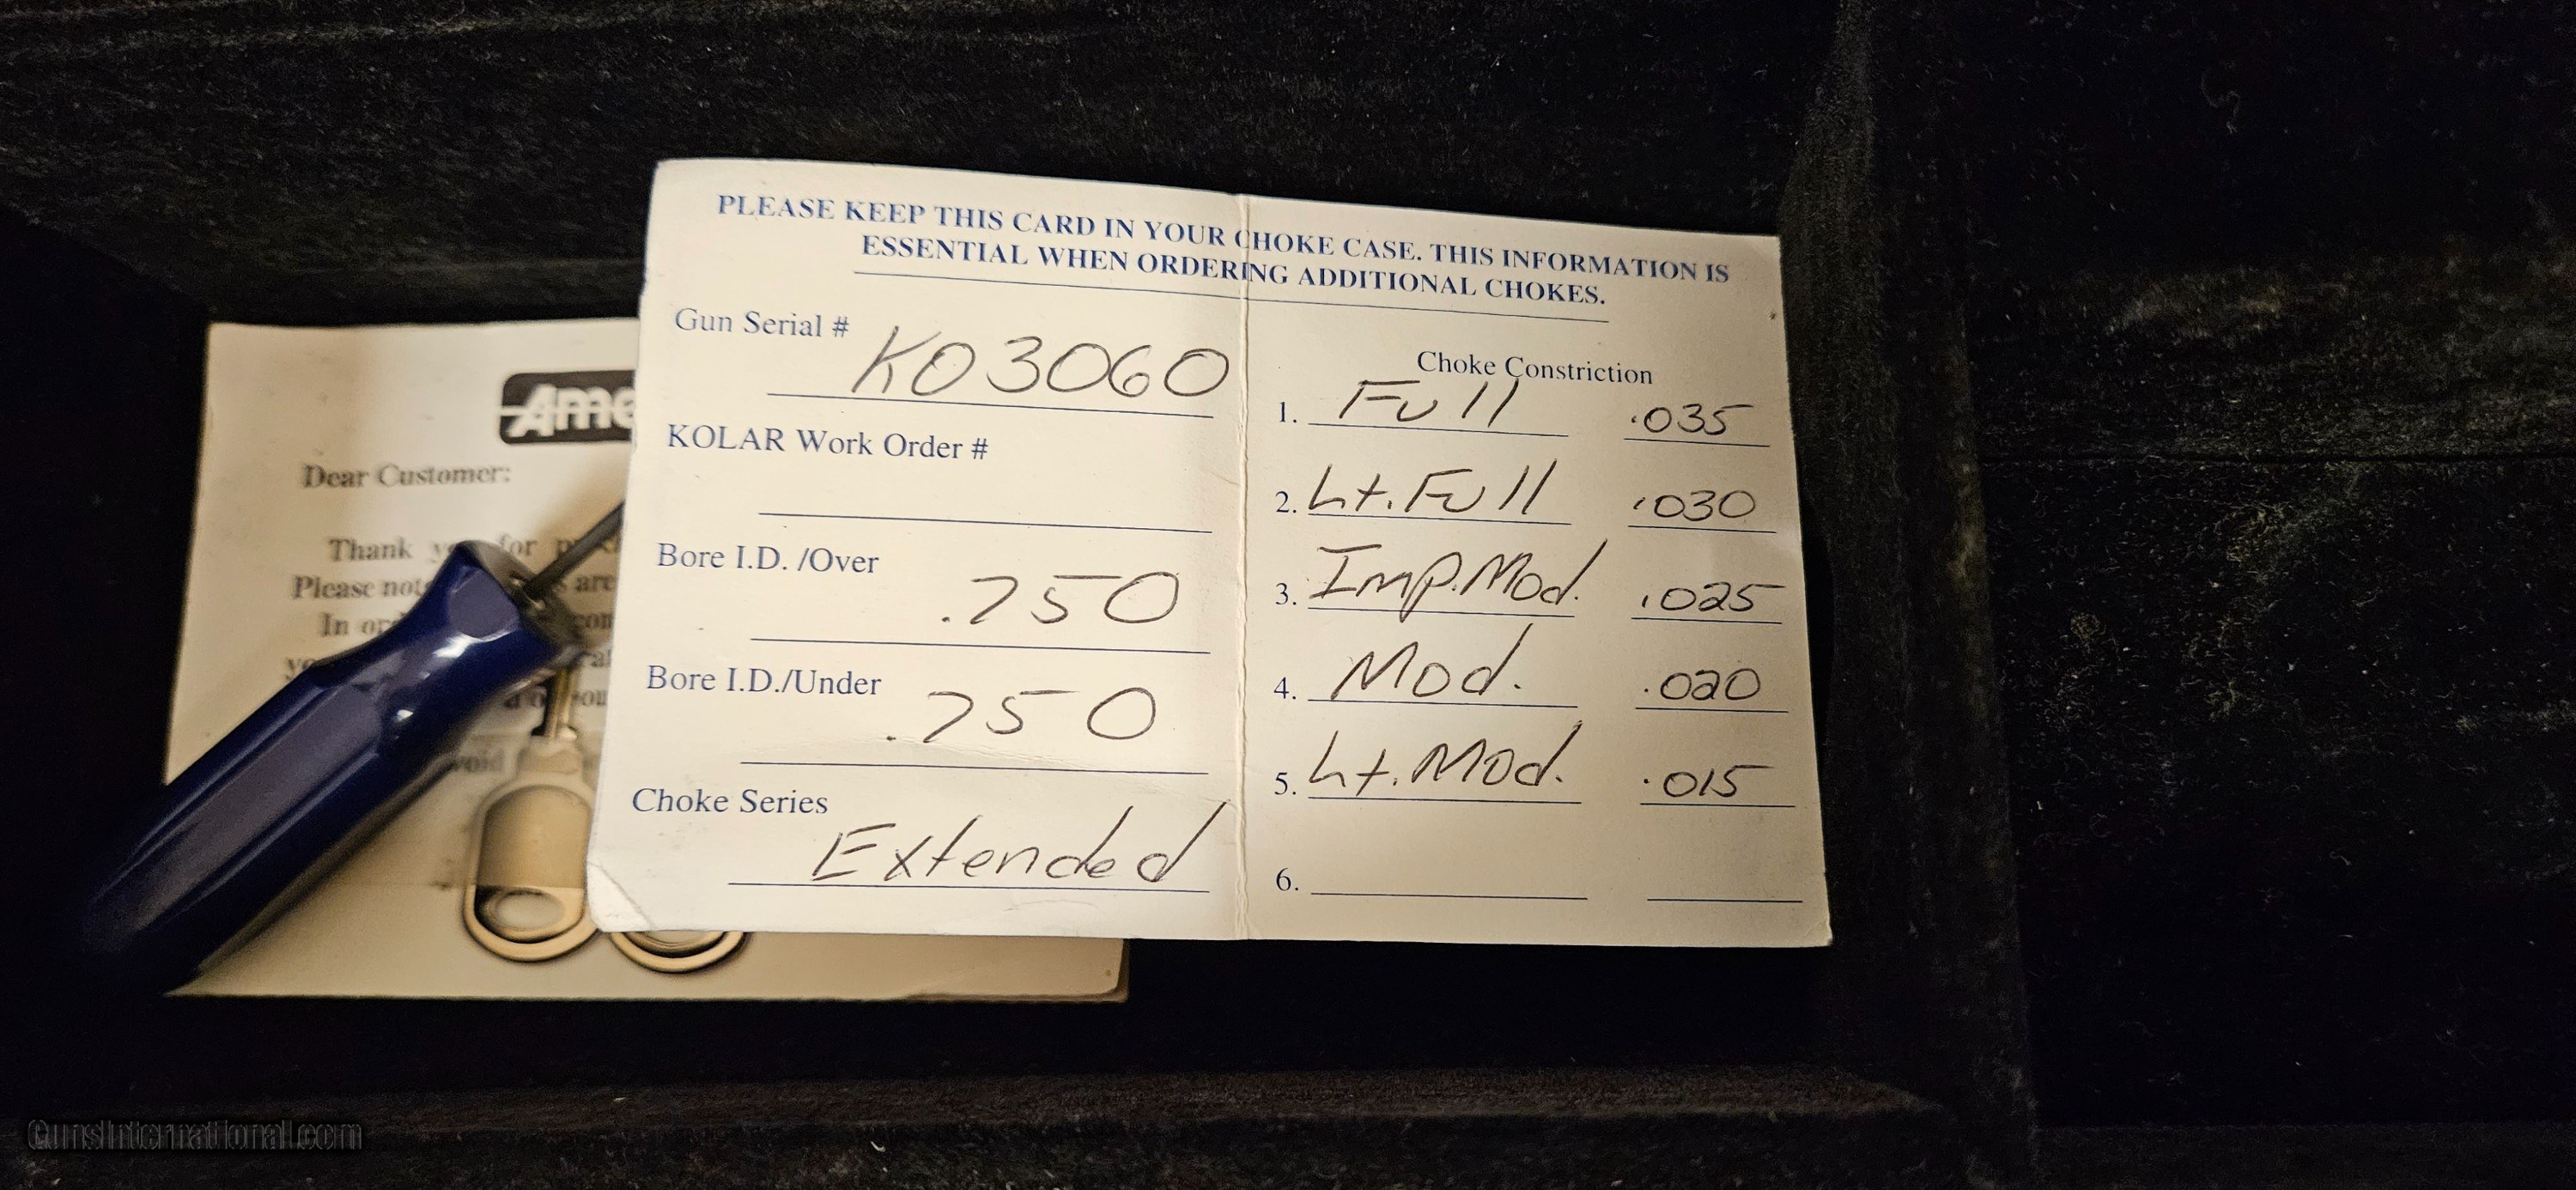 PLEASE KEEP THIS CARD IN YOUR CHOKE CASE. THIS INFORMATION IS
ESSENTIAL WHEN ORDERING ADDITIONAL CHOKES.
Gun Serial # K03060
KOLAR Work Order #
Bore I.D. /Over .750
Bore I.D./Under .750
Choke Series Extended
Choke Constriction
1. Full .035
2. Lt. Full .030
3. Imp. Mod. .025
4. Mod. .020
5. Lt. Mod. .015
6.
Dear Customer:
Thank for
Please are
In
GunsInternational.com